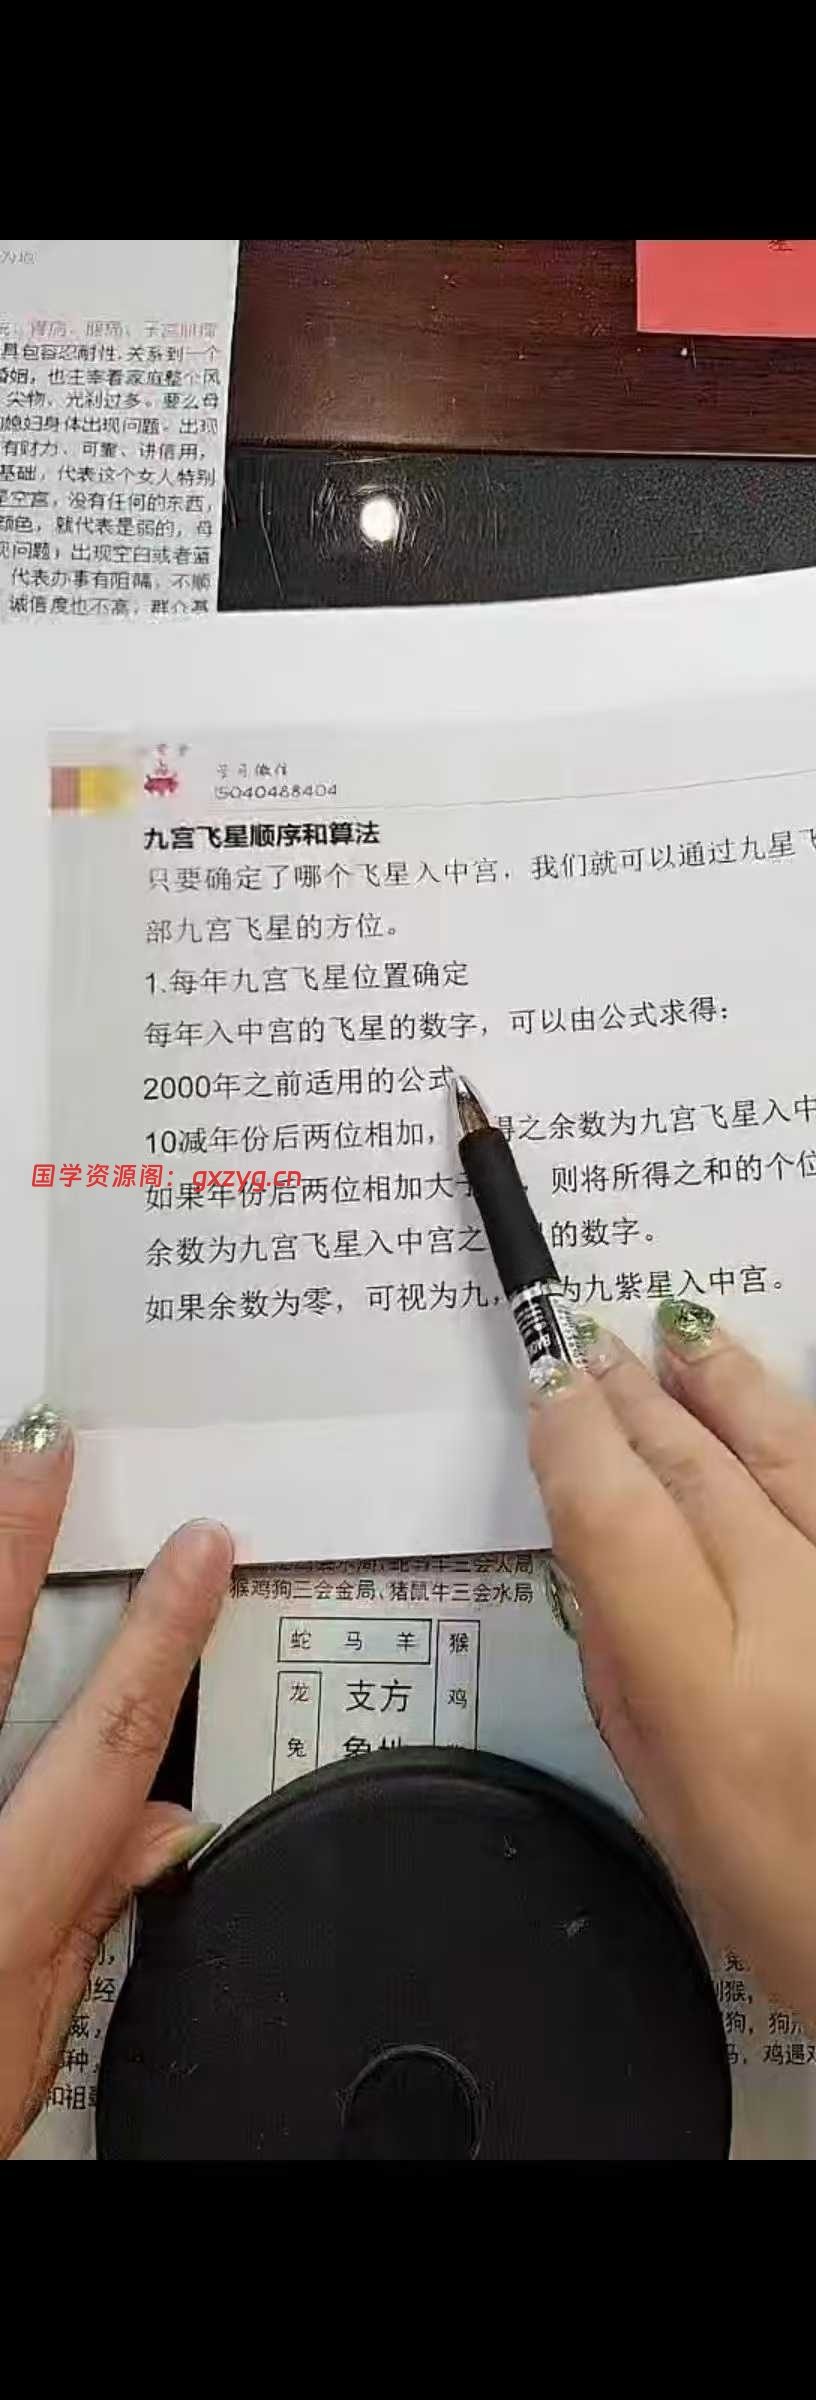 为垣
具包容忍耐性，关系到一个
婚姻，也主宰着家庭整个风
尖物、光刹过多。要么母
媳妇身体出现问题。出现
有财力、可靠、讲信用，
基础，代表这个女人特别
是空宫，没有任何的东西，
颜色，就代表是弱的，母
现问题；出现空白或者蓝
代表办事有阻隔，不顺
诚信度也不高，群众基
学习微信
15040488404
九宫飞星顺序和算法
只要确定了哪个飞星入中宫，我们就可以通过九星飞
部九宫飞星的方位。
1.每年九宫飞星位置确定
每年入中宫的飞星的数字，可以由公式求得：
2000年之前适用的公式
10减年份后两位相加，得之余数为九宫飞星入中
国学资源阁：gxzyg.cn
如果年份后两位相加大于，则将所得之和的个位
余数为九宫飞星入中宫之的数字。
如果余数为零，可视为九，为九紫星入中宫。
猴鸡狗三会金局、猪鼠牛三会水局
蛇 马 羊 猴
龙 支方 鸡
兔
经
威，
种，
和祖
兔
猴，
狗，狗
马，鸡遇